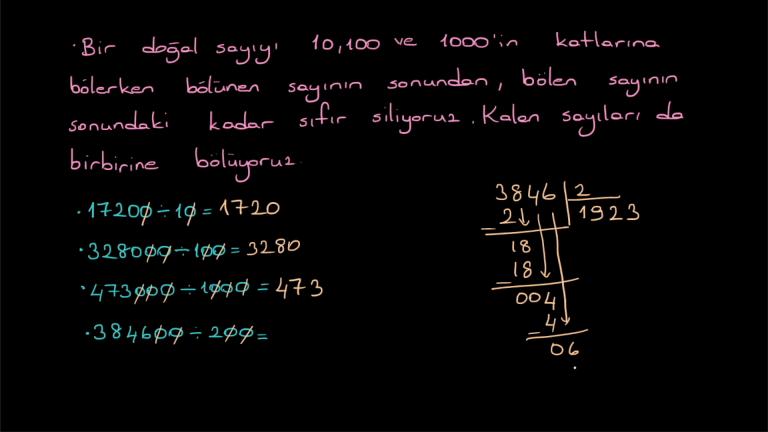 · Bir doğal sayıyı 10,100 ve 1000'in katlarına
bölerken bölünen sayının sonundan, bölen sayının
sonundaki kadar sıfır siliyoruz. Kalan sayıları da
birbirine bölüyoruz.
· 17200 ÷ 10 = 1720
· 328000 ÷ 100 = 3280
· 473000 ÷ 1000 = 473
· 384600 ÷ 200 =
3846 | 2
- 2 1923
18
- 18
004
- 4
06